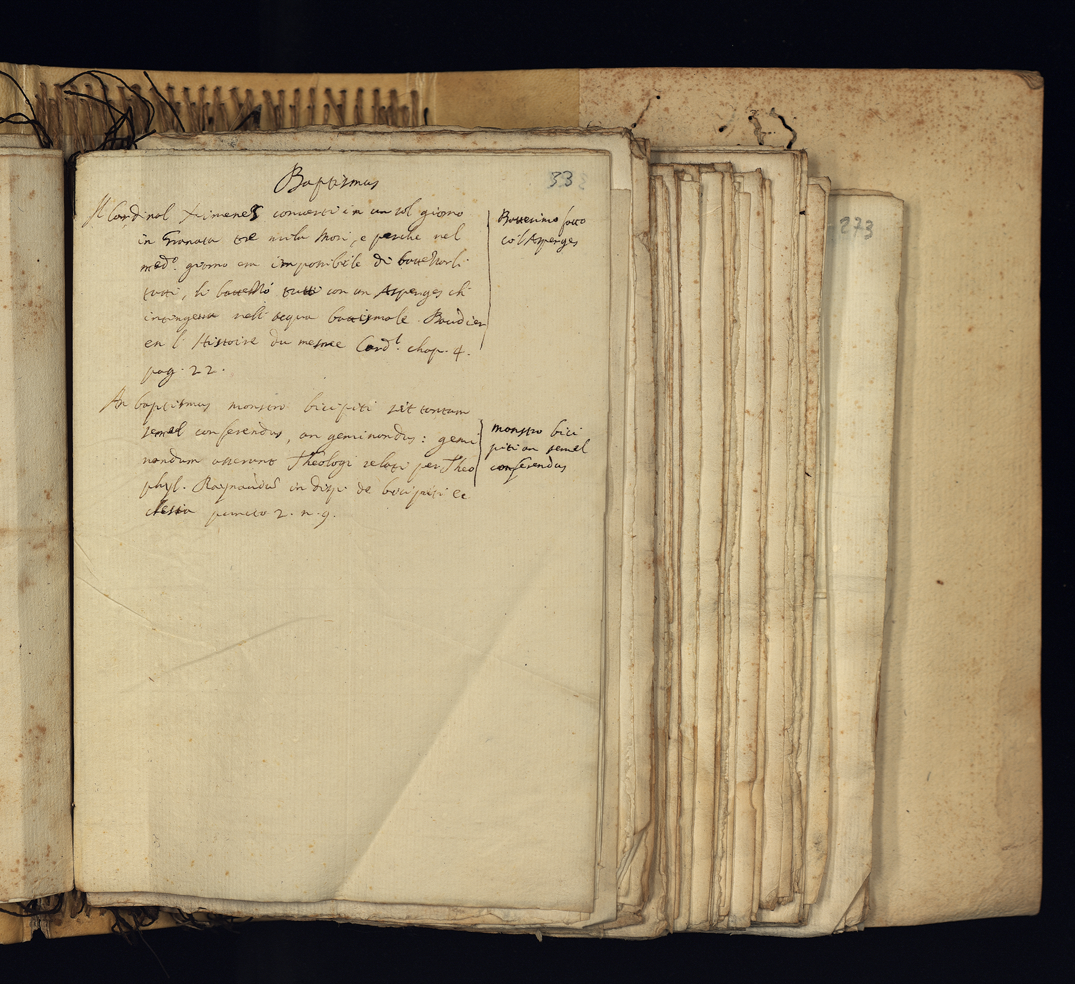 Baptismus
332
Il Cardinal Ximenes convertì in un sol giorno
in Granata tre mila Mori, e perche nel
med.º giorno era impossibile di battezzarli
tutti, li battezzò tutti con un Asperges ch'
intingeva nell' acqua battismale. Baudier
en l' Histoire du mesme Card.l chap. 4.
pag. 22.
Battesimo fatto
co'l Asperges
An baptismus monstro bicipiti sit tantum
semel conferendus, an geminandus: gemi
nandum asserunt Theologi relati per Theo
phyl. Raynaudum in disp. de bicipiti ec
clesia puncto 2. n. 9.
monstro bici
piti an semel
conferendus
273